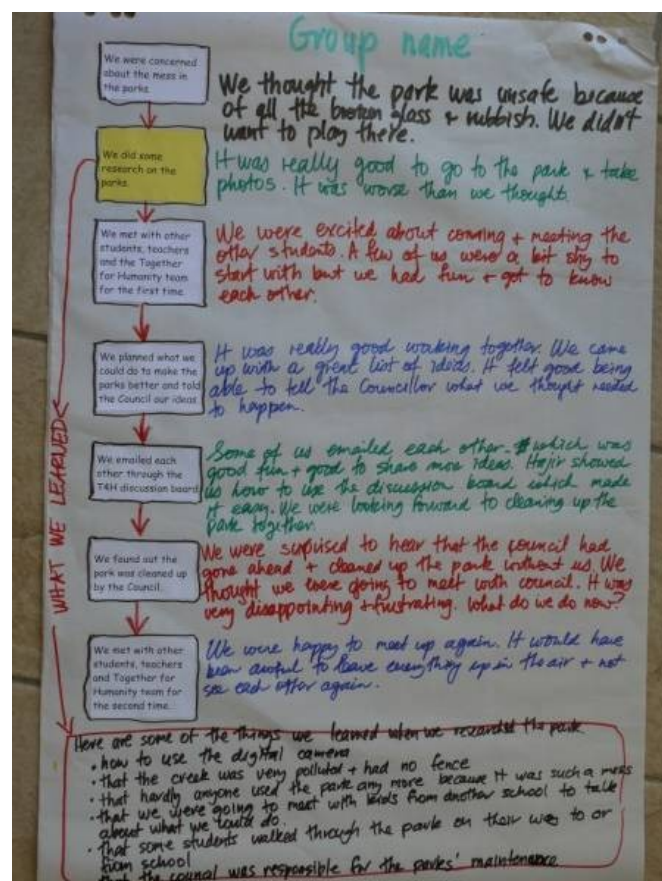 Group name
We were concerned
about the mess in
the parks.
We thought the park was unsafe because
of all the broken glass + rubbish. We didn't
want to play there.
We did some
research on the
parks.
It was really good to go to the park + take
photos. It was worse than we thought.
We met with other
students, teachers
and the Together
for Humanity team
for the first time.
We were excited about coming + meeting the
other students. A few of us were a bit shy to
start with but we had fun + got to know
each other.
We planned what we
could do to make the
parks better and told
the Council our ideas.
It was really good working together. We came
up with a great list of ideas. It felt good being
able to tell the Councillor what we thought needed
to happen.
We emailed each
other through the
T4H discussion board
Some of us emailed each other. which was
good fun + good to share more ideas. Hajir showed
us how to use the discussion board which made
it easy. We were looking forward to cleaning up the
park together.
We found out the
park was cleaned up
by the Council.
We were suprised to hear that the council had
gone ahead + cleaned up the park without us. We
thought we were going to meet with council. It was
very disappointing + frustrating. What do we do now?
We met with other
students, teachers
and Together for
Humanity team for
the second time.
We were happy to meet up again. It would have
been awful to leave everything up in the air + not
see each other again.
WHAT WE LEARNED
Here are some of the things we learned when we researched the park
• how to use the digital camera
• that the creek was very polluted + had no fence
• that hardly anyone used the park any more because it was such a mess
• that we were going to meet with kids from another school to talk
about what we could do.
• that some students walked through the park on their way to or
from school
that the council was responsible for the parks' maintenance